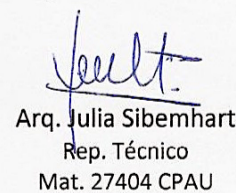 Arq. Julia Sibemhart
Rep. Técnico
Mat. 27404 CPAU